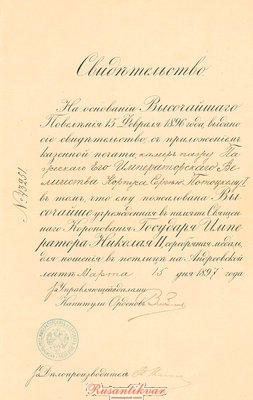 Свидѣтельство
На основаніи Высочайшаго
Повелѣнія 15 Февраля 1896 года, выдано
сіе свидѣтельство, съ приложеніемъ
казенной печати, камеръ пажу Па-
жескаго Его Императорскаго Ве-
личества Корпуса, Сергѣю Потоцкому I
въ томъ, что ему пожалована Вы-
сочайше учрежденная въ память Священ-
наго Коронованія Государя Импе-
ратора Николая II, серебряная медаль,
для ношенія въ петлицѣ на Андреевской
лентѣ. Марта 15 дня 1897 года
За Управляющаго дѣлами
Капитула Орденовъ
За Дѣлопроизводителя
Rusantikvar